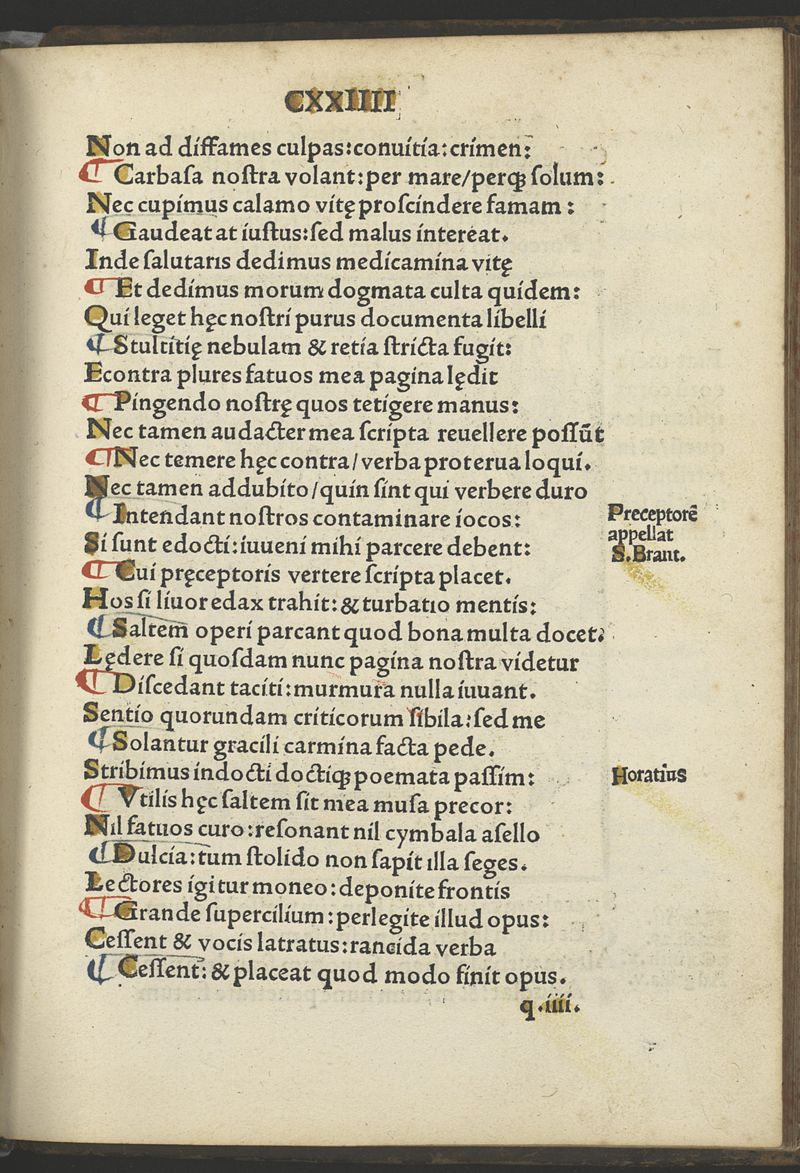 CXXIIII
Non ad diffames culpas:conuitia:crimen:
¶ Carbaſa noſtra volant:per mare/perqꝫ ſolum:
Nec cupimus calamo vitę proſcindere famam:
¶ Gaudeat at iuſtus:ſed malus intereat.
Inde ſalutaris dedimus medicamina vitę
¶ Et dedimus morum dogmata culta quidem:
Qui leget hęc noſtri purus documenta libelli
¶ Stultitię nebulam & retia ſtricta fugit:
Econtra plures fatuos mea pagina lędit
¶ Pingendo noſtrę quos tetigere manus:
Nec tamen audacter mea ſcripta reuellere poſſūt
¶ Nec temere hęc contra/verba proterua loqui.
Nec tamen addubito/quin ſint qui verbere duro
¶ Intendant noſtros contaminare iocos:
Preceptorē
appellat
S.Brant.
Si ſunt edocti:iuueni mihi parcere debent:
¶ Cui pręceptoris vertere ſcripta placet.
Hos ſi liuor edax trahit:& turbatio mentis:
¶ Saltem operi parcant quod bona multa docet:
Lędere ſi quoſdam nunc pagina noſtra videtur
¶ Diſcedant taciti:murmura nulla iuuant.
Sentio quorundam criticorum ſibila:ſed me
¶ Solantur gracili carmina facta pede.
Stribimus indocti doctiqꝫ poemata paſſim:
Horatius
¶ Vtilis hęc ſaltem ſit mea muſa precor:
Nil fatuos curo:reſonant nil cymbala aſello
¶ Dulcia:tum ſtolido non ſapit illa ſeges.
Lectores igitur moneo:deponite frontis
¶ Grande ſupercilium:perlegite illud opus:
Ceſſent & vocis latratus:rancida verba
¶ Ceſſent:& placeat quod modo finit opus.
q.iiii.